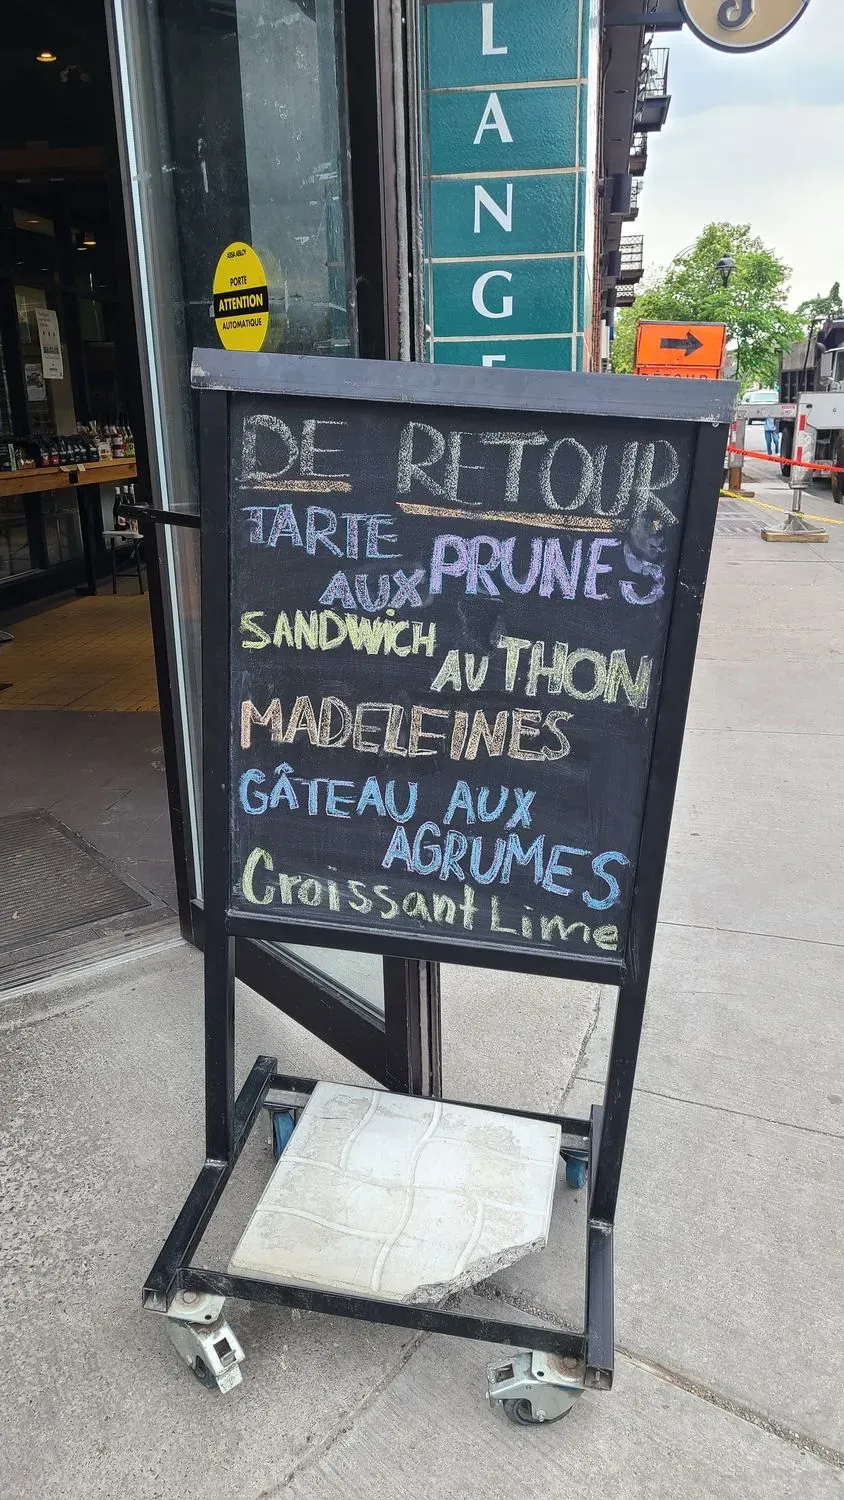 L
A
N
G
ASSA ABLOY
PORTE
ATTENTION
AUTOMATIQUE
DE RETOUR
TARTE
AUX PRUNES
SANDWICH
AU THON
MADELEINES
GÂTEAU AUX
AGRUMES
Croissant Lime